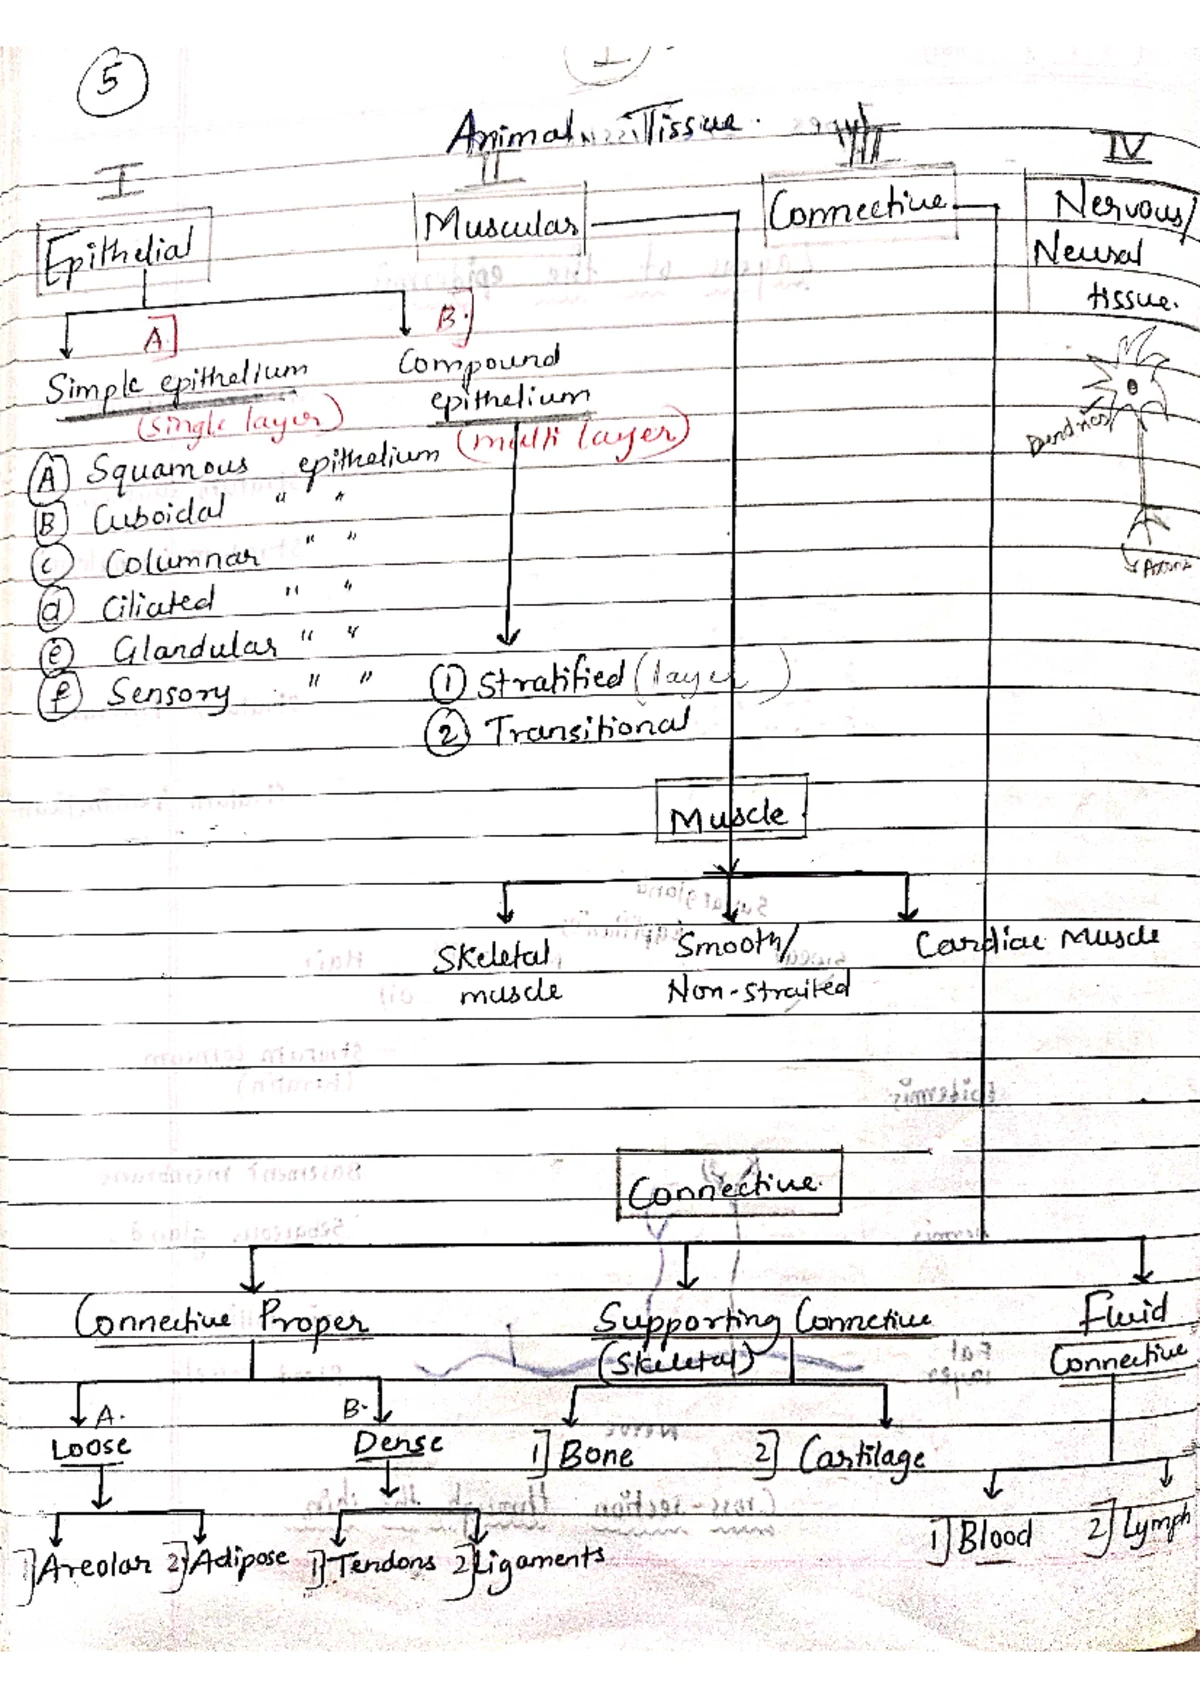 5
Animal Tissue.
I
II
III
IV
Epithelial
Muscular
Connective
Nervous/
Neural
tissue.
A]
B.]
Simple epithelium
(single layer)
Compound
epithelium
(multi layer)
Dendrites
Axon
A Squamous epithelium
B Cuboidal " "
c Columnar " "
d Ciliated " "
e Glandular " "
f Sensory " "
1 Stratified (layer)
2 Transitional
Muscle
Skeletal
muscle
Smooth/
Non-straited
Cardiac Muscle
Connective.
Connective Proper
Supporting Connective
(Skeletal)
Fluid
Connective
A.
Loose
B.
Dense
1] Bone
2] Cartilage
1] Areolar 2] Adipose 1] Tendons 2] Ligaments
1] Blood
2] Lymph